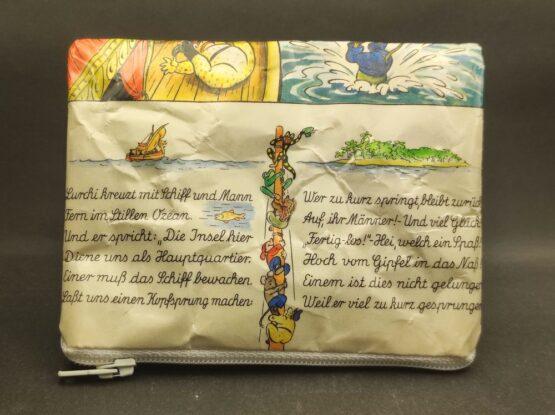 Lurchi kreuzt mit Schiff und Mann
Fern im Stillen Ozean.
Und er spricht: „Die Insel hier
Diene uns als Hauptquartier.
Einer muß das Schiff bewachen
Laßt uns einen Kopfsprung machen
Wer zu kurz springt, bleibt zurück
Auf, ihr Männer!- Und viel Glück
„Fertig-los!"-Hei, welch ein Spaß!
Hoch vom Gipfel in das Naß!
Einem ist dies nicht gelungen
Weil er viel zu kurz gesprungen